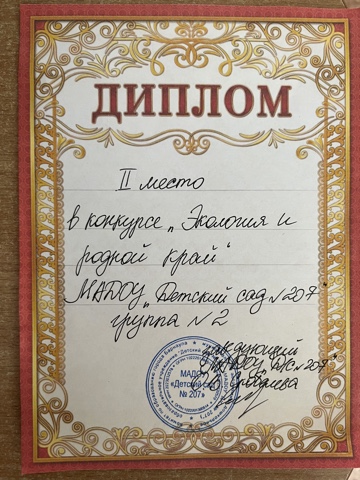 ДИПЛОМ
II место
в конкурсе „Экология и
родной край"
МАДОУ „Детский сад №207"
группа №2
заведующий
МАДОУ „Д/С №207"
МАДОУ
«Детский сад
№ 207»